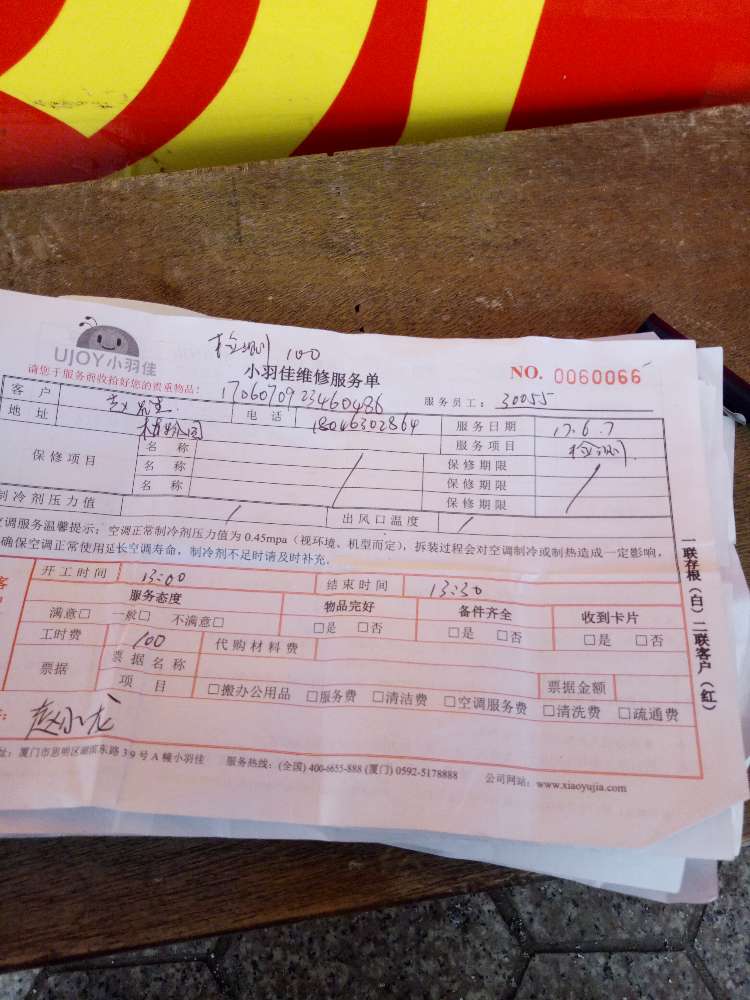 检测 100
UJOY小羽佳
小羽佳维修服务单
NO. 0060066
请您于服务前收拾好您的贵重物品:
17060709223460486
服务员工: 30055
客户 电话 18046302864 服务日期 17.6.7
地址 服务项目 检测
保修项目 名称 保修期限
名称 保修期限
名称 保修期限
制冷剂压力值 / 出风口温度 /
空调服务温馨提示:空调正常制冷剂压力值为0.45mpa(视环境、机型而定),拆装过程会对空调制冷或制热造成一定影响,
确保空调正常使用延长空调寿命,制冷剂不足时请及时补充.
开工时间 13:00 结束时间 13:30
服务态度 物品完好 备件齐全 收到卡片
满意□ 一般□ 不满意□ □是 □否 □是 □否 □是 □否
工时费 100 代购材料费
票据 票据名称 票据金额
项目 □搬办公用品 □服务费 □清洁费 □空调服务费 □清洗费 □疏通费
赵小龙
址:厦门市思明区湖滨东路39号A幢小羽佳 服务热线:(全国) 400-6655-888 (厦门) 0592-5178888 公司网站:www.xiaoyujia.com
一联存根(白)二联客户(红)